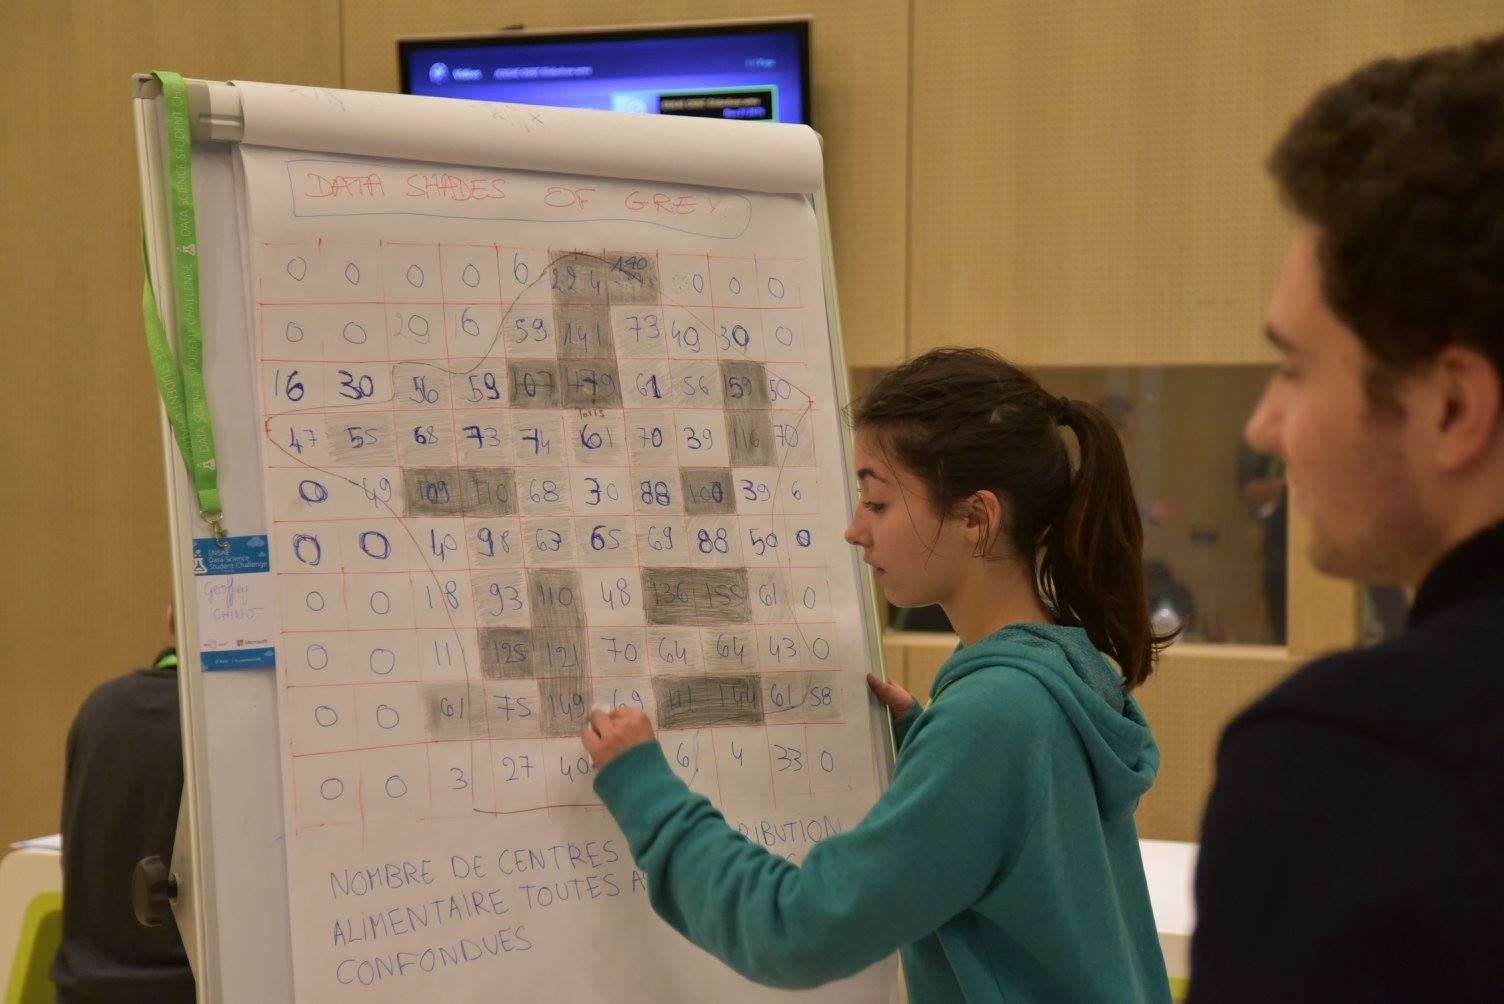 DATA SHADES OF GREY
0 0 0 0 6 224 170 0 0 0
0 0 29 16 59 141 73 49 30 0
16 30 56 59 107 479 61 56 159 50
Paris
47 55 68 73 74 61 70 39 116 70
0 49 109 110 68 30 88 100 39 6
0 0 40 98 63 65 69 88 50 0
0 0 18 93 110 48 136 155 61 0
0 0 11 125 121 70 64 64 43 0
0 0 61 75 149 69 111 144 61 58
0 0 3 27 40 6 4 33 0
NOMBRE DE CENTRES RIBUTION
ALIMENTAIRE TOUTES
CONFONDUES
DATA SCIENCE STUDENT CHALLENGE
ENSAE
Data Science
Student Challenge
Geoffrey
CHINOT